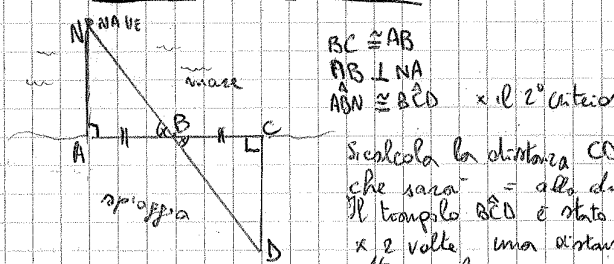 N NAVE
mare
A
B
C
spiaggia
D
BC ≅ AB
AB ⊥ NA
AB̂N ≅ BĈD x il 2° criterio
Si calcola la distanza CD
che sarà = alla
Il triangolo BĈD è stato
x 2 volte una